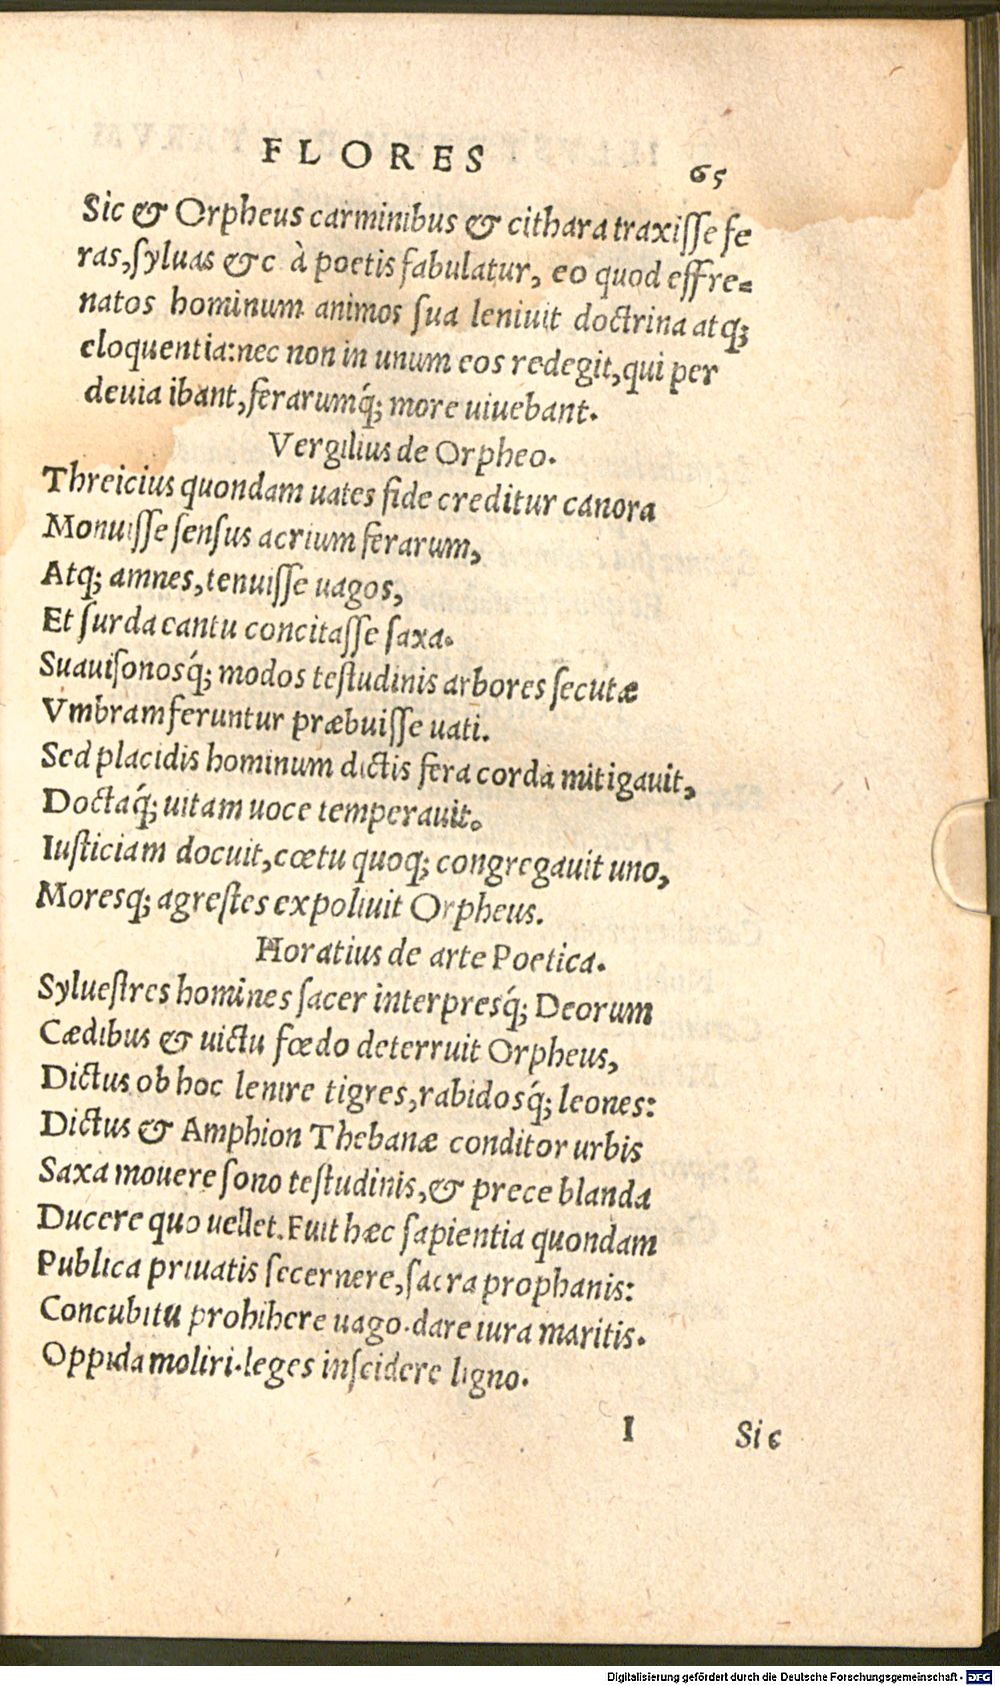 FLORES 65
Sic & Orpheus carminibus & cithara traxiſſe fe
ras, ſyluas &c à poetis fabulatur, eo quod effre=
natos hominum animos ſua leniuit doctrina atq;
eloquentia: nec non in unum eos redegit, qui per
deuia ibant, ferarumq́; more uiuebant.
Vergilius de Orpheo.
Threicius quondam uates fide creditur canora
Monuiſſe ſenſus acrium ferarum,
Atq; amnes, tenuiſſe uagos,
Et ſurda cantu concitaſſe ſaxa.
Suauiſonosq́; modos teſtudinis arbores ſecutæ
Vmbram feruntur præbuiſſe uati.
Sed placidis hominum dictis fera corda mitigauit,
Doctaq́; uitam uoce temperauit.
Iuſticiam docuit, cœtu quoq; congregauit uno,
Moresq; agreſtes expoliuit Orpheus.
Horatius de arte Poetica.
Sylueſtres homines ſacer interpresq́; Deorum
Cædibus & uictu fœdo deterruit Orpheus,
Dictus ob hoc lenire tigres, rabidosq́; leones:
Dictus & Amphion Thebanæ conditor urbis
Saxa mouere ſono teſtudinis, & prece blanda
Ducere quo uellet. Fuit hæc ſapientia quondam
Publica priuatis ſecernere, ſacra prophanis:
Concubitu prohibere uago. dare iura maritis.
Oppida moliri. leges inſcidere ligno.
I Sic
Digitalisierung gefördert durch die Deutsche Forschungsgemeinschaft - DFG